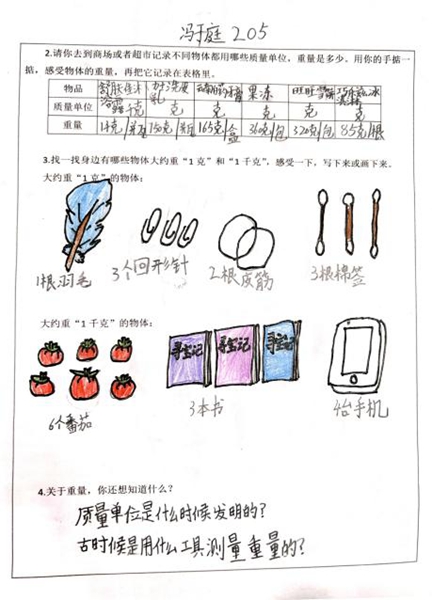 冯于庭 205
2.请你去到商场或者超市记录不同物体都用哪些质量单位，重量是多少。用你的手掂一
掂，感受物体的重量，再把它记录在表格里。
物品 舒肤佳沐浴露 果冻 旺旺雪饼 巧乐兹冰淇淋
质量单位 千克 克 克 克 克 克
重量 1千克/瓶 150克/瓶 165克/盒 360克/包 320克/包 85克/根
3.找一找身边有哪些物体大约重“1克”和“1千克”，感受一下，写下来或画下来。
大约重“1克”的物体：
1根羽毛 3个回形针 2根皮筋 3根棉签
大约重“1千克”的物体：
寻宝记 寻宝记 寻宝记
6个番茄 3本书 4台手机
4.关于重量，你还想知道什么？
质量单位是什么时候发明的？
古时候是用什么工具测量重量的？